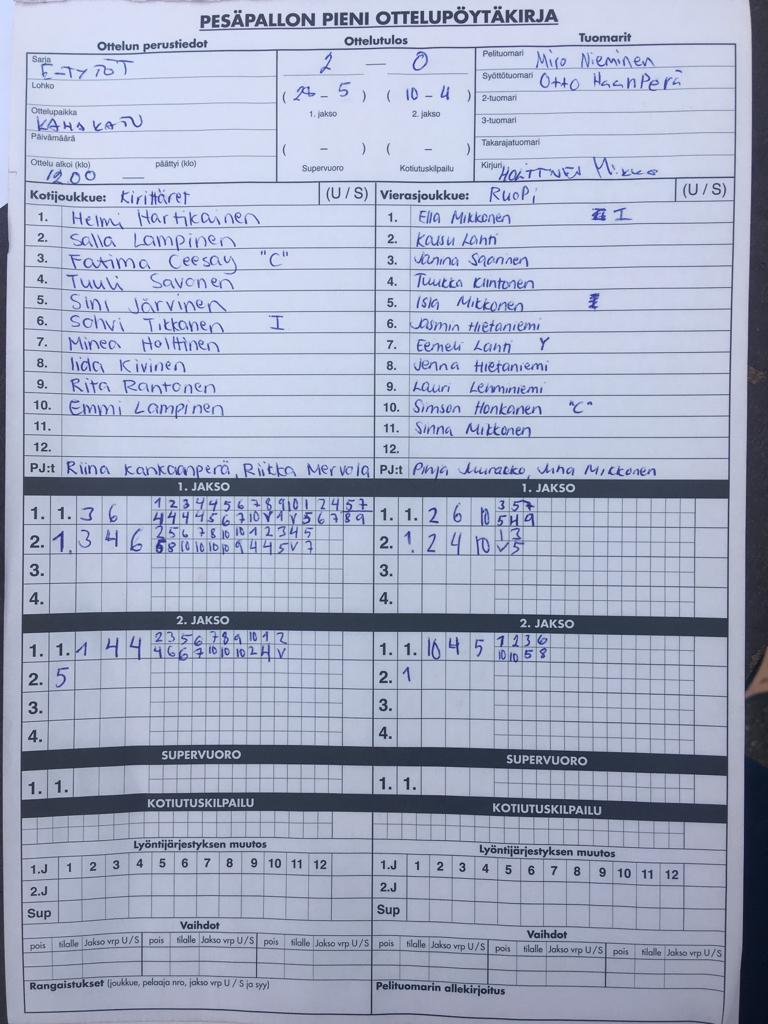 PESÄPALLON PIENI OTTELUPÖYTÄKIRJA
Ottelun perustiedot
Sarja
E-TYTÖT
Lohko
Ottelupaikka
KAHAKATU
Päivämäärä
Ottelu alkoi (klo) päättyi (klo)
1200 —
Ottelutulos
2 — 0
( 28 - 5 ) ( 10 - 4 )
1. jakso 2. jakso
( - ) ( - )
Supervuoro Kotiutuskilpailu
Tuomarit
Pelituomari Miro Nieminen
Syöttötuomari Otto Haanperä
2-tuomari
3-tuomari
Takarajatuomari
Kirjuri Mikko
Kotijoukkue: Kirittäret (U / S)
1. Helmi Hartikainen
2. Salla Lampinen
3. Fatima Ceesay "C"
4. Tuuli Savonen
5. Sini Järvinen
6. Sohvi Tikkanen I
7. Minea Holttinen
8. Iida Kivinen
9. Rita Rantonen
10. Emmi Lampinen
11.
12.
PJ:t Riina Kankaanperä, Riikka Mervola
Vierasjoukkue: RuoPi (U / S)
1. Ella Mikkonen I
2. Kaisu Lahti
3. Janina Saarinen
4. Tuukka Kiintonen
5. Isla Mikkonen
6. Jasmin Hietaniemi
7. Eemeli Lahti Y
8. Jenna Hietaniemi
9. Lauri Lehminiemi
10. Simson Honkanen "C"
11. Sinna Mikkonen
12.
PJ:t Pinja Juha Mikkonen
1. JAKSO
1. 1. 3 6
1 2 3 4 4 5 6 7 8 9 10 1 2 4 5 7
4 4 4 4 5 6 7 10 V 1 V 5 6 7 8 9
2. 1. 3 4 6
2 5 6 7 8 10 10 1 2 3 4 5
6 8 10 10 10 10 9 4 4 5 V 7
3.
4.
1. JAKSO
1. 1. 2 6 10
3 5 7
5 4 9
2. 1. 2 4 10
1 3
V 5
3.
4.
2. JAKSO
1. 1. 1 4 4
2 3 5 6 7 8 9 10 1 2
4 6 6 7 10 10 10 2 4 V
2. 5
3.
4.
2. JAKSO
1. 1. 10 4 5
1 2 3 6
10 10 5 8
2. 1
3.
4.
SUPERVUORO
1. 1.
SUPERVUORO
1. 1.
KOTIUTUSKILPAILU
KOTIUTUSKILPAILU
Lyöntijärjestyksen muutos
1.J 1 2 3 4 5 6 7 8 9 10 11 12
2.J
Sup
Lyöntijärjestyksen muutos
1.J 1 2 3 4 5 6 7 8 9 10 11 12
2.J
Sup
Vaihdot
pois tilalle Jakso vrp U / S pois tilalle Jakso vrp U / S pois tilalle Jakso vrp U / S
Vaihdot
pois tilalle Jakso vrp U / S pois tilalle Jakso vrp U / S pois tilalle Jakso vrp U / S
Rangaistukset (joukkue, pelaaja nro, jakso vrp U / S ja syy)
Pelituomarin allekirjoitus